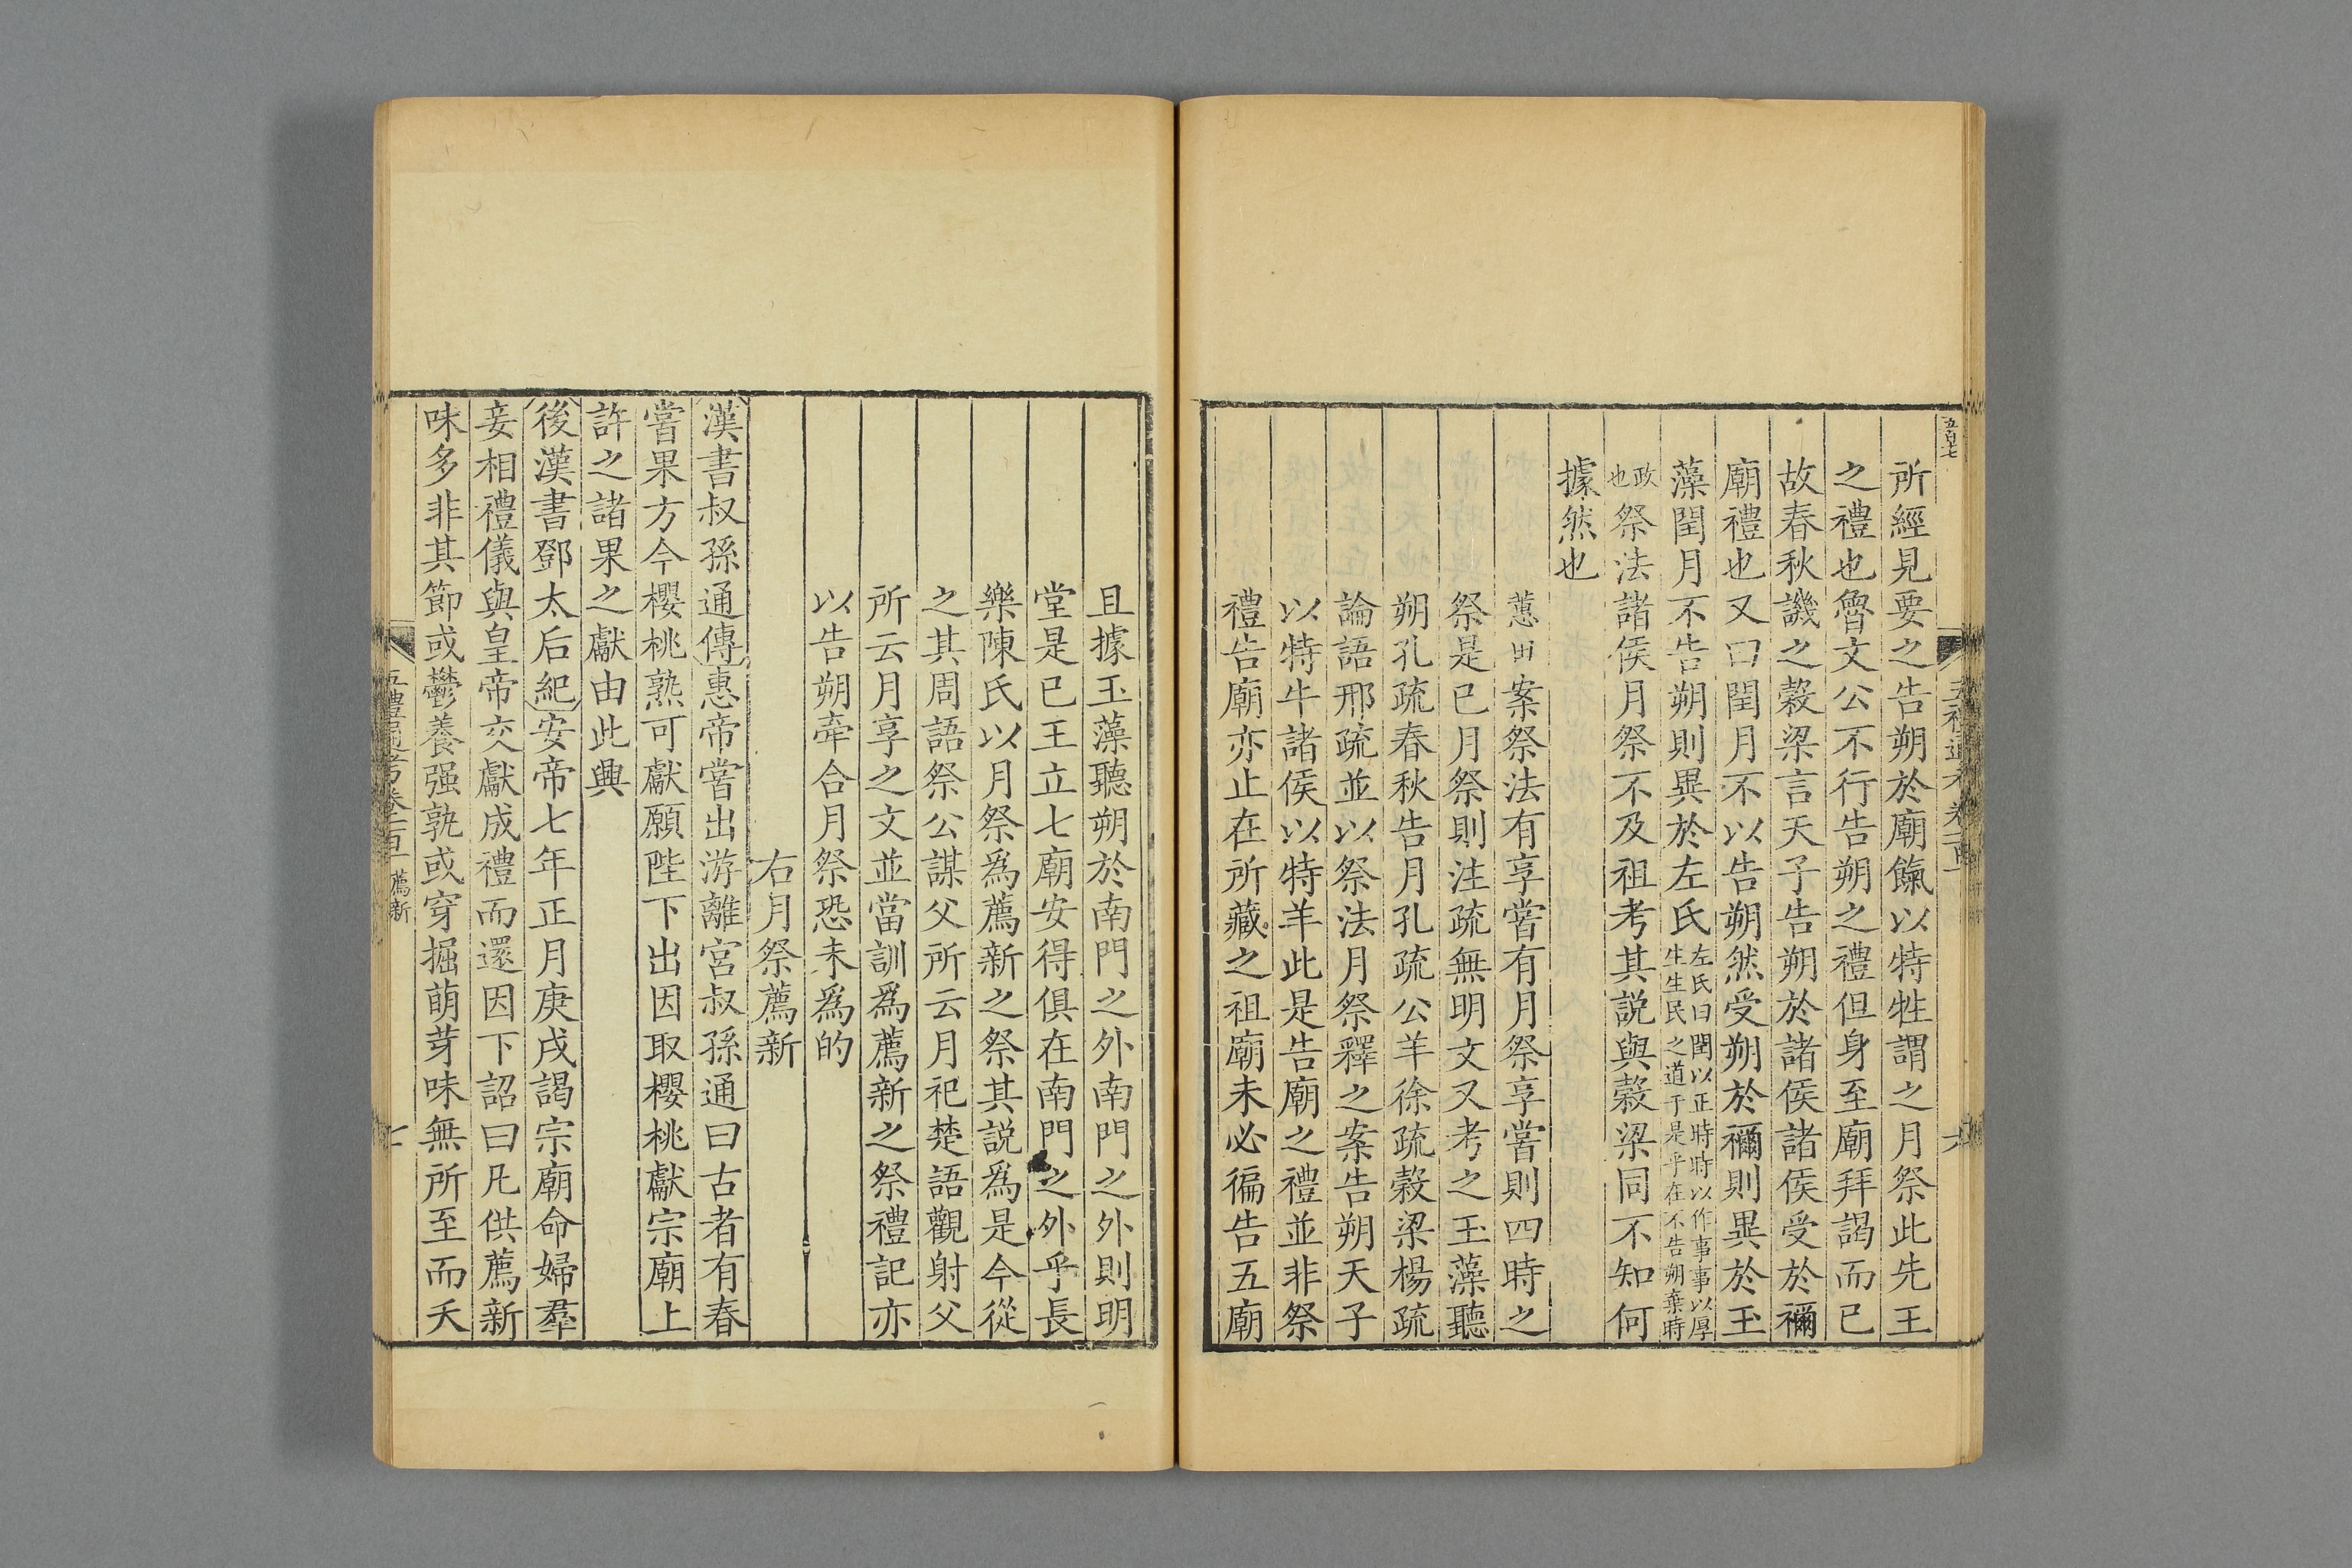 五百七
所經見要之告朔於廟餼以特牲謂之月祭此先王
之禮也魯文公不行告朔之禮但身至廟拜謁而已
故春秋譏之穀梁言天子告朔於諸侯諸侯受於禰
廟禮也又曰閏月不以告朔然受朔於禰則異於玉
藻閏月不告朔則異於左氏左氏曰閏以正時時以作事事以厚生生民之道于是乎在不告朔棄時
政也祭法諸侯月祭不及祖考其説與穀梁同不知何
據然也
蕙田案祭法有享嘗有月祭享嘗則四時之
祭是已月祭則注疏無明文又考之玉藻聽
朔孔疏春秋告月孔疏公羊徐疏穀梁楊疏
論語邢疏並以祭法月祭釋之案告朔天子
以特牛諸侯以特羊此是告廟之禮並非祭
禮告廟亦止在所藏之祖廟未必徧告五廟
且據玉藻聽朔於南門之外南門之外則明
堂是已王立七廟安得俱在南門之外乎長
樂陳氏以月祭爲薦新之祭其説爲是今從
之其周語祭公謀父所云月祀楚語觀射父
所云月享之文並當訓爲薦新之祭禮記亦
以告朔牽合月祭恐未爲的
右月祭薦新
漢書叔孫通傳惠帝嘗出游離宮叔孫通曰古者有春
嘗果方今櫻桃熟可獻願陛下出因取櫻桃獻宗廟上
許之諸果之獻由此興
後漢書鄧太后紀安帝七年正月庚戌謁宗廟命婦羣
妾相禮儀與皇帝交獻成禮而還因下詔曰凡供薦新
味多非其節或鬱養强孰或穿掘萌芽味無所至而夭
五禮通考卷一百一 薦新
七